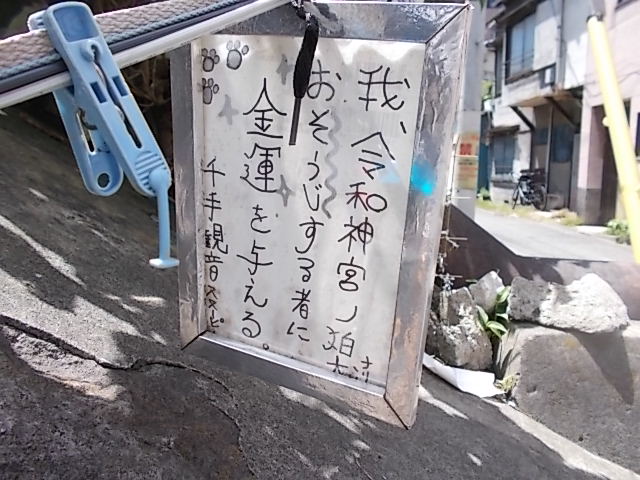 我、令和神宮ノ狛犬
おそうじする者に
金運を与える。
千手観音スタンピー